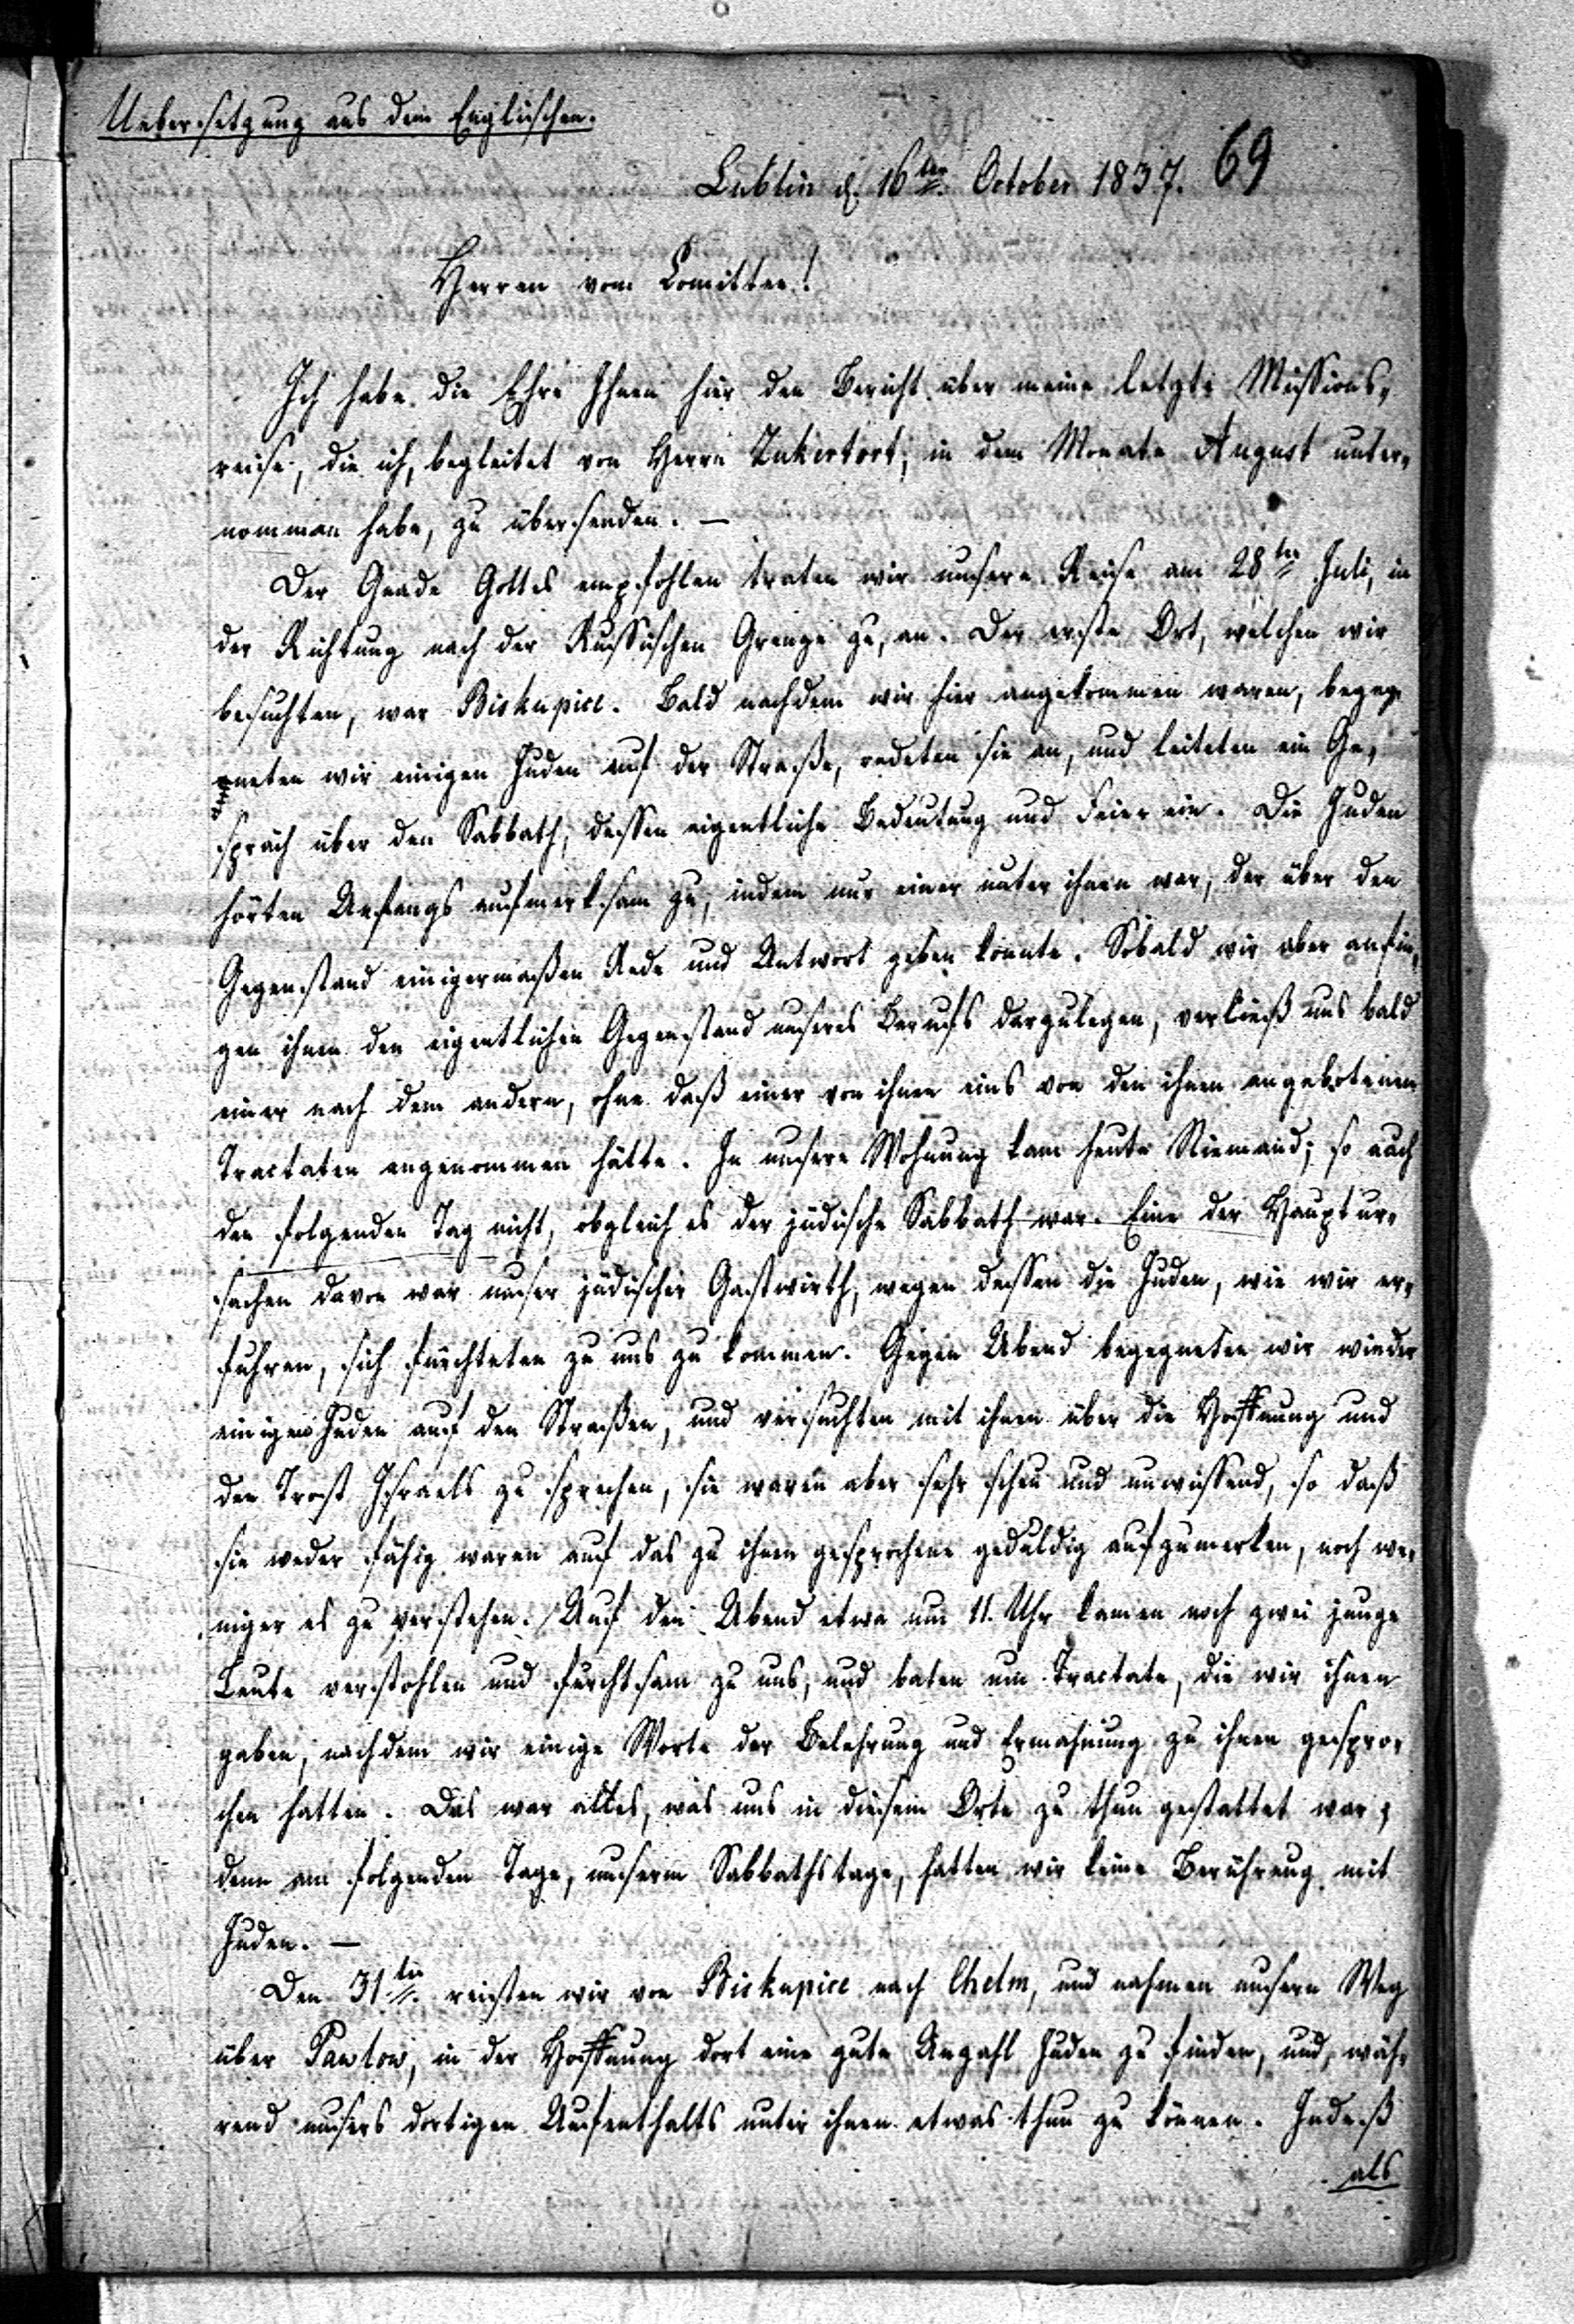 Uebersetzung aus dem Englischen.
69
Lublin d. 16ten October 1837.
Herren vom Comittee!
Ich habe die Ehre Ihnen hier den Bericht über meine letzte Missions-
reise, die ich, begleitet von Herrn Zukertort, in dem Monate August unter-
nommen habe, zu übersenden. —
Der Gnade Gottes empfohlen traten wir unsere Reise am 28ten Juli, in
der Richtung nach der Russischen Grenze zu, an. Der erste Ort, welchen wir
besuchten, war Biskupice. Bald nachdem wir hier angekommen waren, begeg-
neten wir einigen Juden auf der Straße, redeten sie an, und leiteten ein Ge-
spräch über den Sabbath, dessen eigentliche Bedeutung und Feier ein. Die Juden
hörten Anfangs aufmerksam zu, indem nur einer unter ihnen war, der über den
Gegenstand einigermaßen Rede und Antwort geben konnte. Sobald wir aber anfin-
gen ihnen den eigentlichen Gegenstand unseres Berufs darzulegen, verließ uns bald
einer nach dem andern, ohne daß einer von ihnen eins von den ihnen angebotenen
Tractaten angenommen hätte. In unsere Wohnung kam heute Niemand; so auch
den folgenden Tag nicht, obgleich es der jüdische Sabbath war. Eine der Hauptur-
sachen davon war unser jüdischer Gastwirth, wegen dessen die Juden, wie wir er-
fuhren, sich fürchteten zu uns zu kommen. Gegen Abend begegneten wir wieder
einigen Juden auf den Straßen, und versuchten mit ihnen über die Hoffnung und
den Trost Israels zu sprechen, sie waren aber sehr scheu und unwissend, so daß
sie weder fähig waren auf das zu ihnen gesprochene geduldig aufzumerken, noch we-
niger es zu verstehen. Auf den Abend etwa um 11. Uhr kamen noch zwei junge
Leute verstohlen und furchtsam zu uns, und baten um Tractate, die wir ihnen
gaben, nachdem wir einige Worte der Belehrung und Ermahnung zu ihnen gespro-
chen hatten. Das war alles, was uns in diesem Orte zu thun gestattet war;
denn am folgenden Tage, unserm Sabbathstage, hatten wir keine Berührung mit
Juden. —
Den 31ten reisten wir von Biskupice nach Chelm, und nahmen unsern Weg
über Pawlow, in der Hoffnung dort eine gute Anzahl Juden zu finden, und, wäh-
rend unsers dortigen Aufenthalts unter ihnen etwas thun zu können. Indeß
als